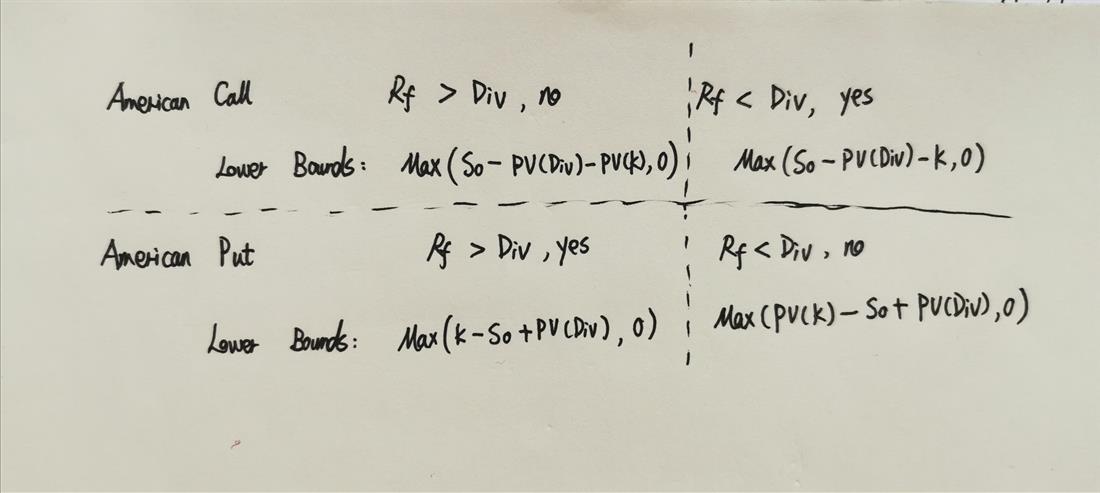 American Call Rf > Div, no Rf < Div, yes
Lower Bounds: Max(So - PV(Div) - PV(k), 0) Max(So - PV(Div) - k, 0)
American Put Rf > Div, yes Rf < Div, no
Lower Bounds: Max(k - So + PV(Div), 0) Max(PV(k) - So + PV(Div), 0)